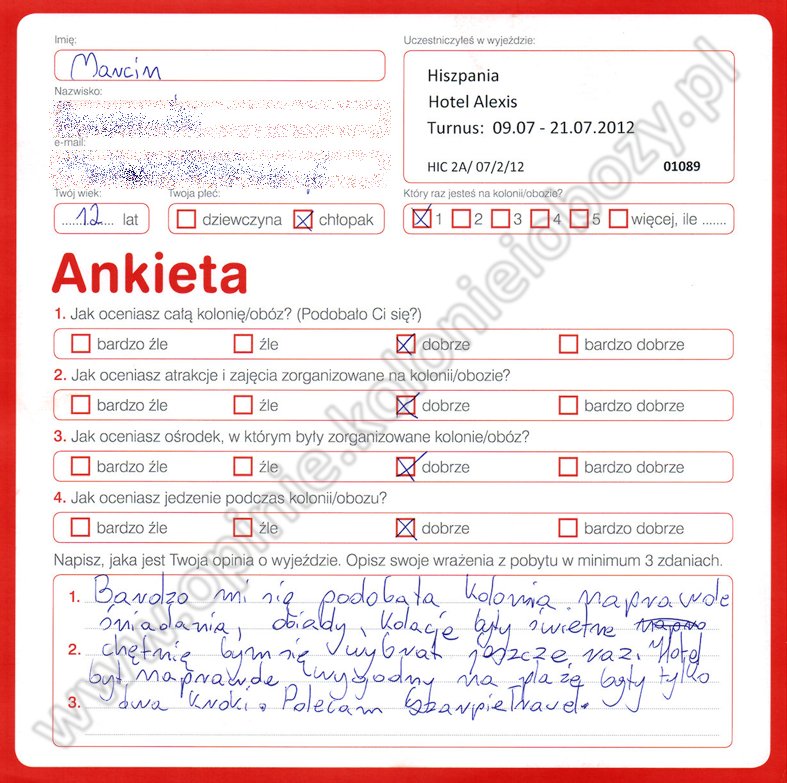 Imię:
Marcin
Nazwisko:
e-mail:
Twój wiek:
12 lat
Twoja płeć:
dziewczyna chłopak
Uczestniczyłeś w wyjeździe:
Hiszpania
Hotel Alexis
Turnus: 09.07 - 21.07.2012
HIC 2A/ 07/2/12 01089
Który raz jesteś na kolonii/obozie?
1 2 3 4 5 więcej, ile .......
Ankieta
1. Jak oceniasz całą kolonię/obóz? (Podobało Ci się?)
bardzo źle źle dobrze bardzo dobrze
2. Jak oceniasz atrakcje i zajęcia zorganizowane na kolonii/obozie?
bardzo źle źle dobrze bardzo dobrze
3. Jak oceniasz ośrodek, w którym były zorganizowane kolonie/obóz?
bardzo źle źle dobrze bardzo dobrze
4. Jak oceniasz jedzenie podczas kolonii/obozu?
bardzo źle źle dobrze bardzo dobrze
Napisz, jaka jest Twoja opinia o wyjeździe. Opisz swoje wrażenia z pobytu w minimum 3 zdaniach.
1. Bardzo mi się podobała kolonia. naprawde
śniadania, obiady, kolacje były świetne
2. chętnię bym się wybrał jeszcze raz. Hotel
był naprawde wygodny na plażę były tylko
3. dwa kroki. Polecam
www.opinie.kolonieiobozy.pl